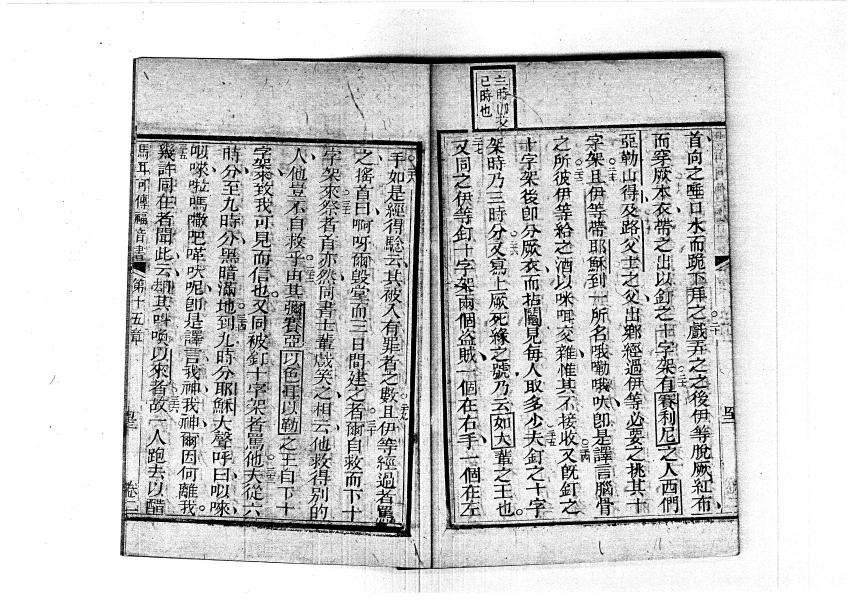 三時卽交
巳時也
首向之唾口水而跪下拜之戲弄之之後伊等脫厥紅布
而穿厥本衣帶之出以釘之十字架有賽利尼之人西們
亞勒山得及路父士之父出鄉經過伊等必要之挑其十
字架且伊等帶耶穌到一所名哦嘞哦吠卽是譯言腦骨
之所彼伊等給之酒以咪咡交雜惟其不接收又旣釘之
十字架後卽分厥衣而拈鬮見每人取多少夫釘之十字
架時乃三時分又寫上厥死緣之號乃云如大輩之王也
又同之伊等釘十字架兩個盜賊一個在右手一個在左
手如是經得驗云其被入有罪者之數且伊等經過者罵
之搖首曰啊呀爾毀堂而三日間建之者爾自救而下十
字架來祭者首亦然同書士輩戲笑之相云他救得別的
人他豈不自救乎由其彌賽亞以色耳以勒之王自下十
字架來致我可見而信也又同被釘十字架者罵他夫從六
時分至九時分黑暗滿地到九時分耶穌大聲呼曰以唻
以唻啦嗎撒吧𠹌吠呢卽是譯言我神我神爾因何離我
幾許同在者聞此云却其呌喚以來者故一人跑去以醋
馬耳可傳福音書
第十五章
卷二